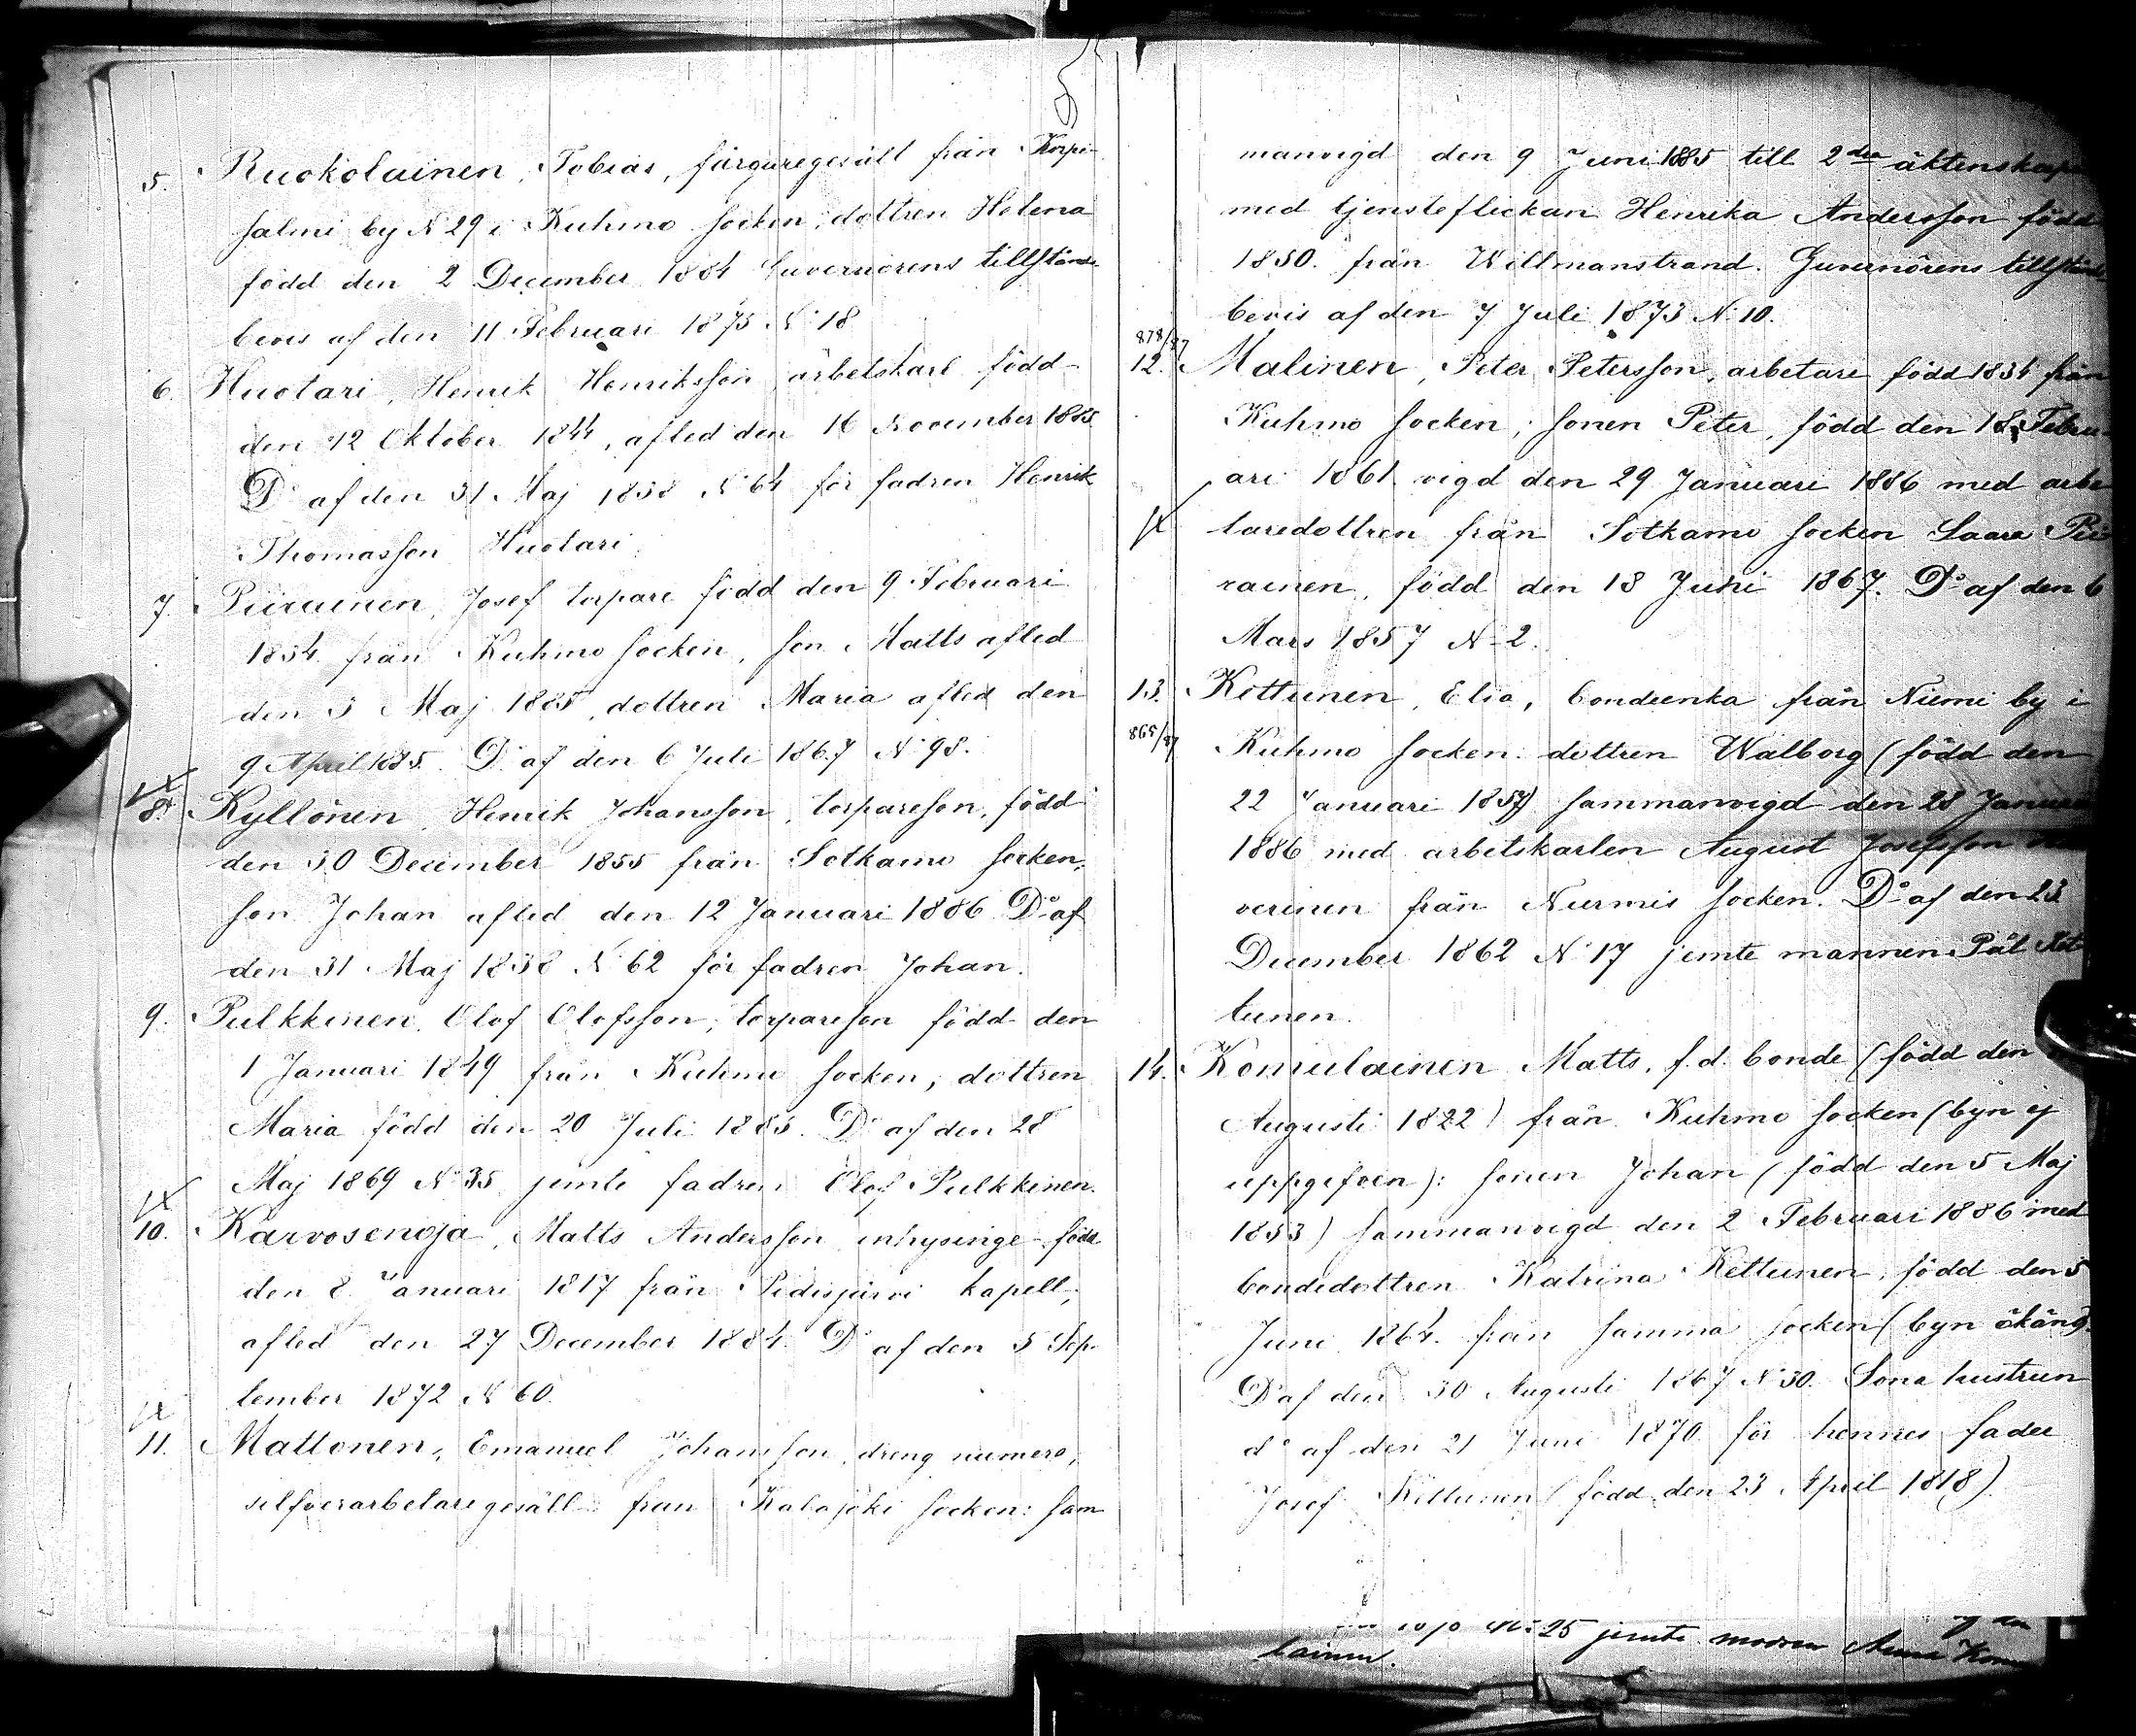 5. Ruokolainen, Tobias, färgaregesäll från Korpi-
salmi by N 29 i Kuhmo socken; dottren Helena
född den 2 December 1884 Guvernörens tillstånds
bevis af den 11 Februari 1875 N 18
6. Huotari, Henrik Henriksson, arbetskarl född
den 12 Oktober 1844, afled den 16 November 1885
Do af den 31 Maj 1838 N 64 för fadren Henrik
Thomasson Huotari.
7. Piirainen, Josef torpare född den 9 Februari
1834 från Kuhmo socken, son Matts afled
den 3 Maj 1885, dottren Maria afled den
9 April 1885. Do af den 6 Juli 1867 N 98.
8. Kyllönen, Henrik Johansson, torpareson, född
den 30 December 1855 från Sotkamo socken;
son Johan afled den 12 Januari 1886 Do af
den 31 Maj 1838 N 62 för fadren Johan.
9. Pulkkinen, Olof Olofsson, torpareson född den
1 Januari 1849 från Kuhmo socken; dottren
Maria född den 20 Juli 1885. Do af den 28
Maj 1869 N 35 jemte fadren Olof Pulkkinen.
10. Karvosenoja, Matts Andersson inhysinge född
den 8 Januari 1817 från Pidisjärvi kapell;
afled den 27 December 1884. Do af den 5 Sep-
tember 1872 N 60.
11. Mattonen, Emanuel Johansson, dreng numero,
silfverarbetaregesäll från Kalajoki socken: sam
manvigd den 9 Juni 1885 till 2dra äktenskapet
med tjensteflickan Henrika Andersson född
1850. från Willmanstrand. Guvernörens tillstånds
bevis af den 7 Juli 1873 N 10.
878/87
12. Malinen, Peter Petersson, arbetare född 1834 från
Kuhmo socken; sonen Peter, född den 18 Febru-
ari 1861 vigd den 29 Januari 1886 med arbe
taredottren från Sotkamo socken Saara Pii
rainen, född den 18 Juni 1867. Do af den 6
Mars 1857 N 2.
13. Kettunen, Elsa, bondeenka från Niemi by i
865/87 Kuhmo socken: dottren Walborg (född den
22 Januari 1857) sammanvigd den 28 Januari
1886 med arbetskarlen August Josefsson
verinen från Nurmis socken. Do af den 23
December 1862 N 17 jemte mannen Pål Ket
tunen.
14. Komulainen Matts, f.d. bonde (född den
Augusti 1822) från Kuhmo socken (byn ej
uppgifven): sonen Johan (född den 5 Maj
1853) sammanvigd den 2 Februari 1886 med
bondedottren Katrina Kettunen, född den 5
Juni 1864. från samma socken (byn okänd.
Do af den 30 Augusti 1867 N 30. Sona hustrun
do af den 21 Juni 1870 för hennes fader
Josef Kettunen (född den 23 April 1818).
N 25 jemte modren Anna Kom
lainen.